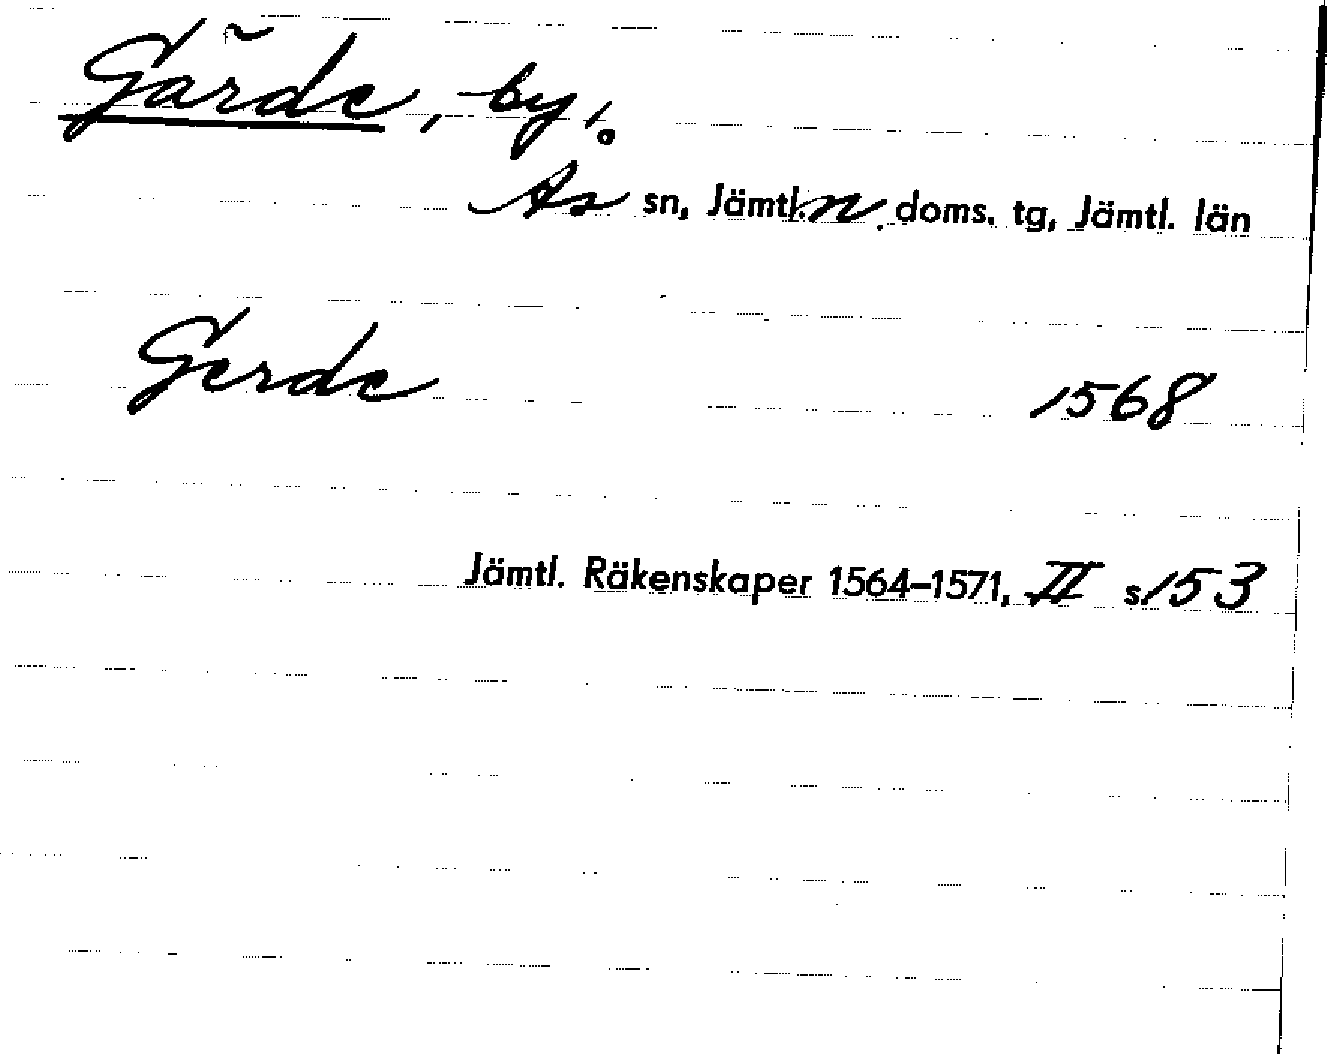 Gärde, by.
Ås sn, Jämtl. n. doms. tg, Jämtl. län
Gerde 1568
Jämtl. Räkenskaper 1564-1571, II s. 153